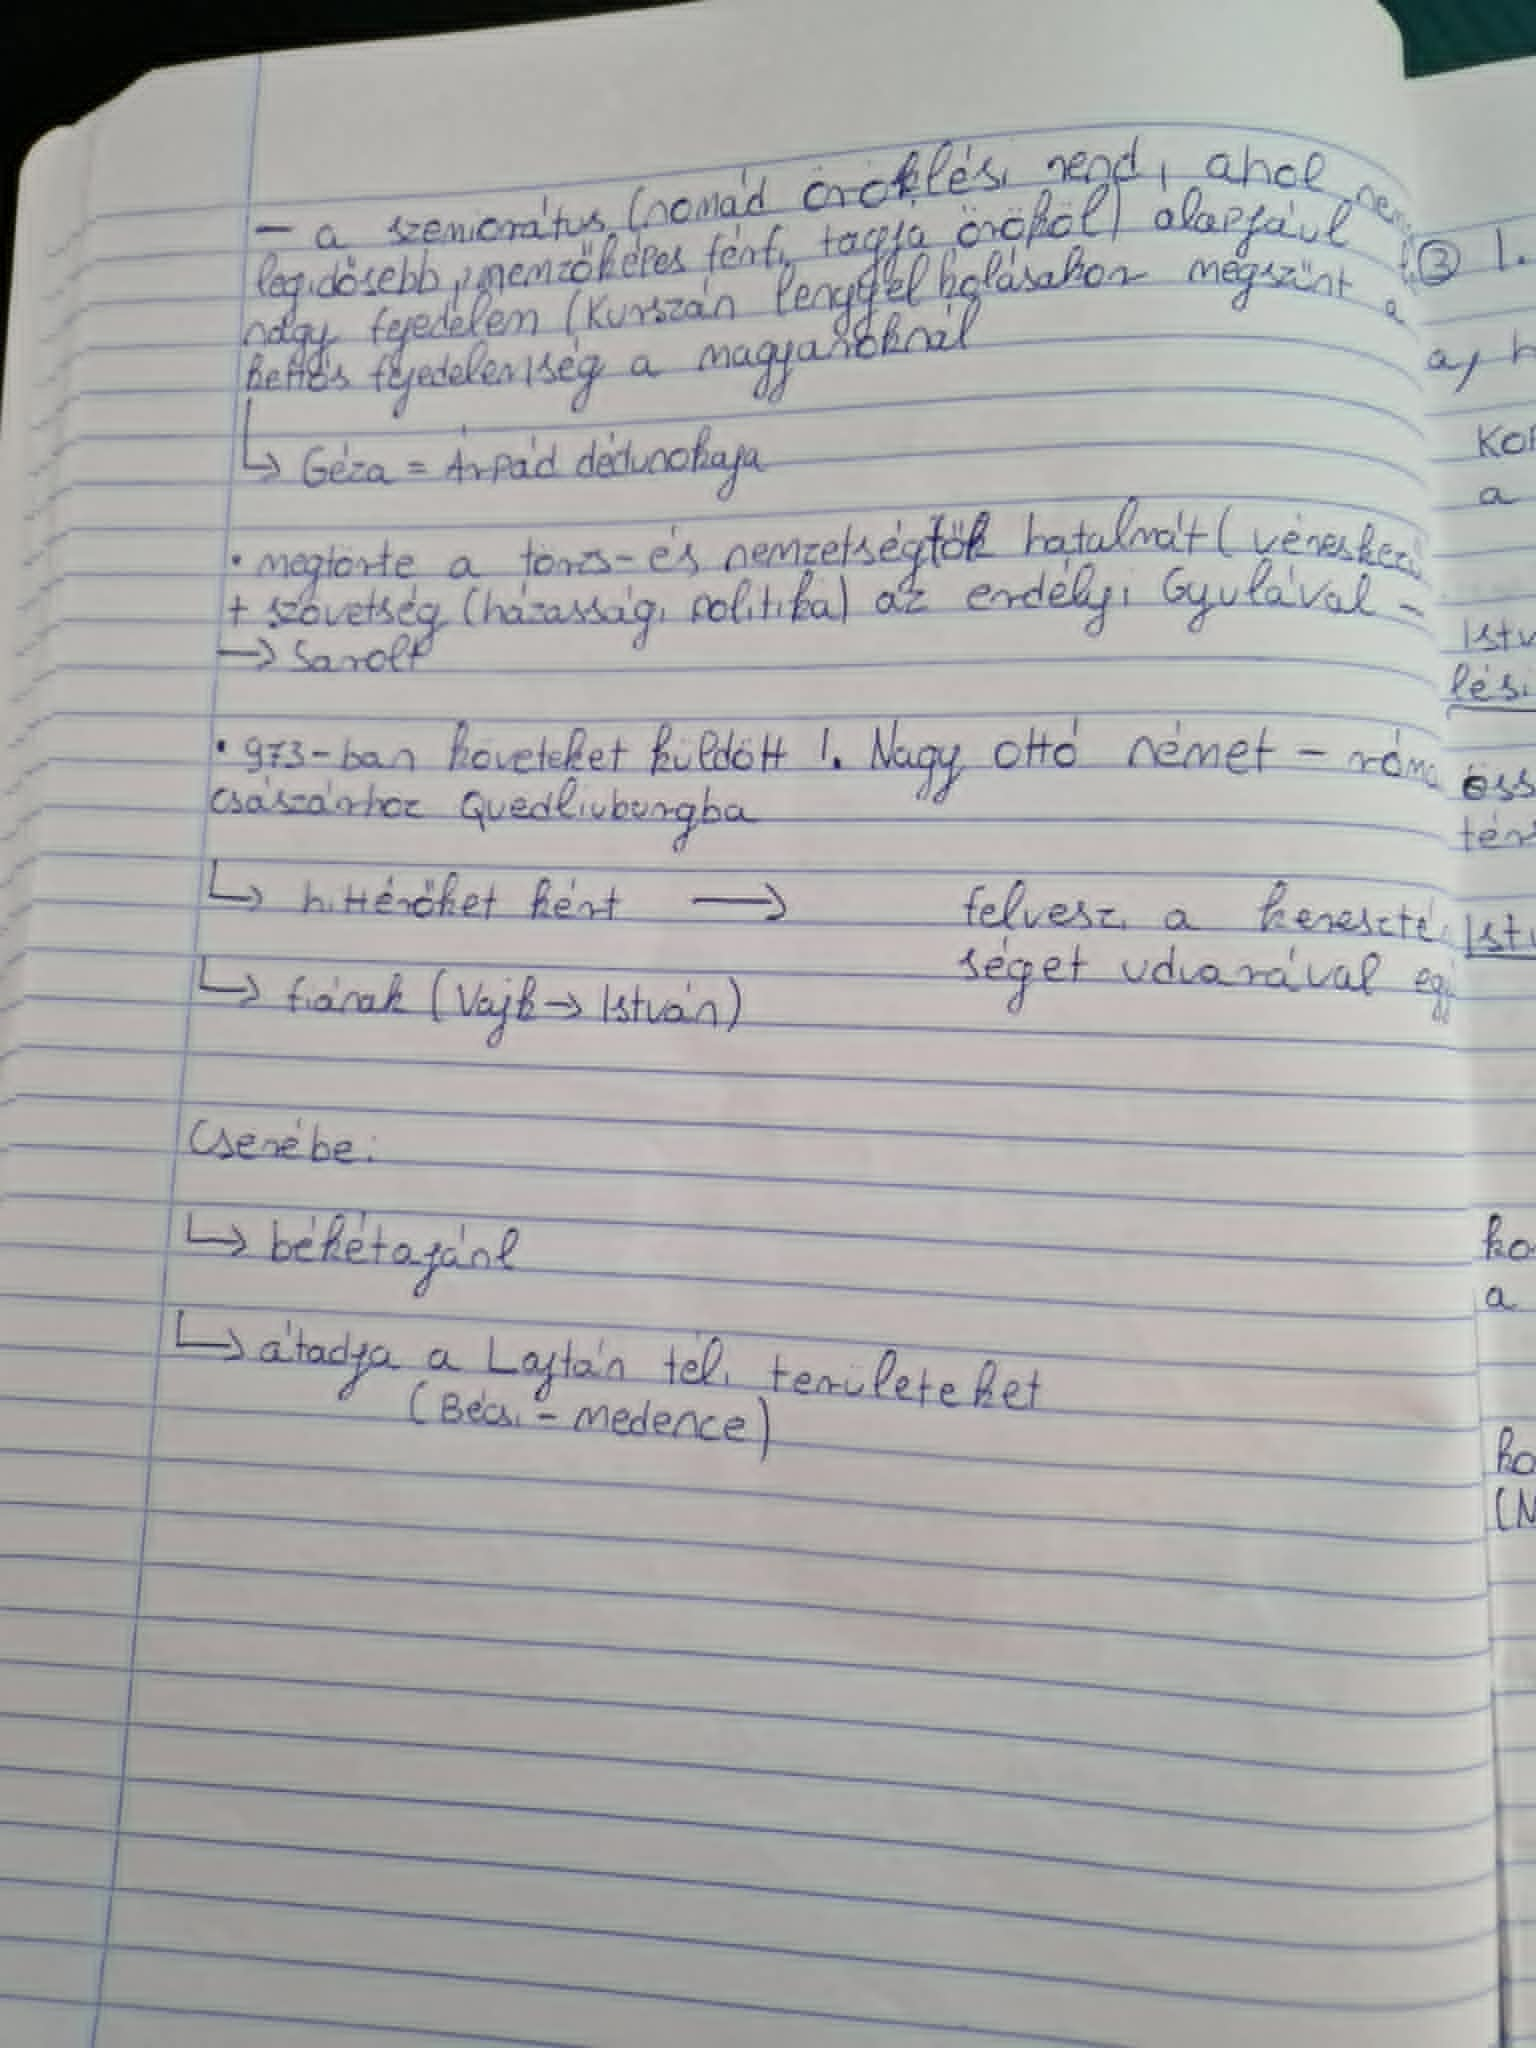 – a szeniorátus (nomád öröklési rend, ahol nem
legidősebb, nemzőképes férfi tagja örököl) alapjául
nagy fejedelem (Kurszán lenyggelholásakor megszűnt a
kettős fejedelemség a magyaroknál
↳ Géza = Árpád dédunokaja
• megtörte a törzs- és nemzetségfők hatalmát (véreskezű
+ szövetség (házassági politika) az erdélyi Gyulával –
→ Sarolt
• 973-ban követeket küldött I. Nagy Ottó német – róma
császárhoz Quedliuburgba
↳ hittérőket kért → felveszi a kereszté
séget udvarával egy
↳ fiának (Vajk → István)
Cserébe:
↳ békétajánl
↳ átadja a Lajtán téli területeket
(Bécsi – medence)
③ 1.
a,
a
lési
öss
tér
ko
a
(N